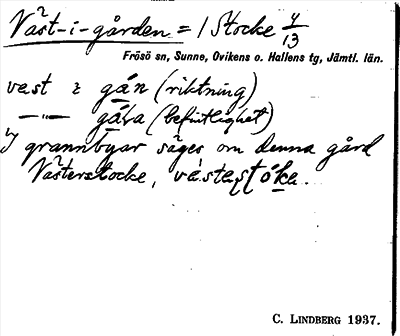 Väst-i-gården = 1 Stocke 4/13
Frösö sn, Sunne, Ovikens o. Hallens tg, Jämtl. län.
vest i gán (riktning)
—"— gáꞏa (befintlighet)
I grannbyar säges om denna gård
Västerstocke, västastóke.
C. LINDBERG 1937.